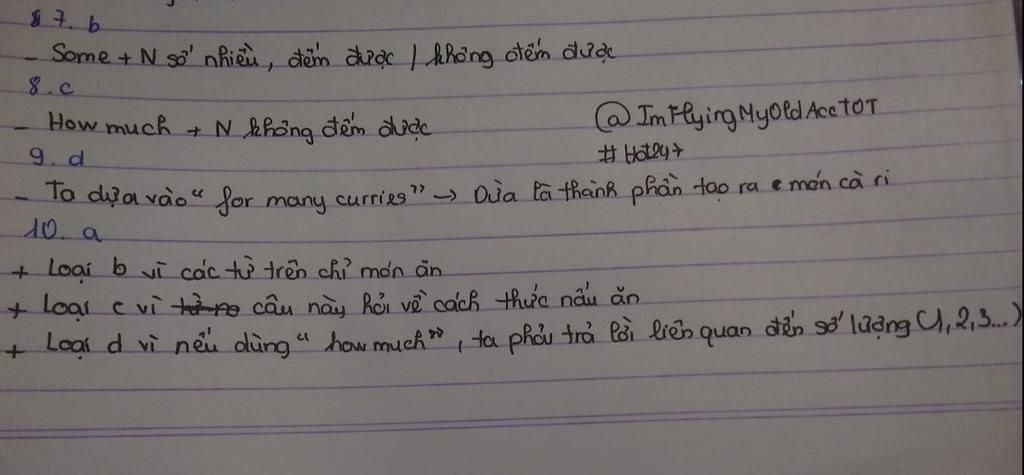 7. b
- Some + N số nhiều, đếm được / không đếm được
8. c
- How much + N không đếm được
@ImFlyingMyOldAccTOT
9. d
#Hoạt
- Ta dựa vào " for many curries" → Dừa là thành phần tạo ra món cà ri
10. a
+ Loại b vì các từ trên chỉ món ăn
+ Loại c vì câu này hỏi về cách thức nấu ăn
+ Loại d vì nếu dùng " how much", ta phải trả lời liên quan đến số lượng (1,2,3...)